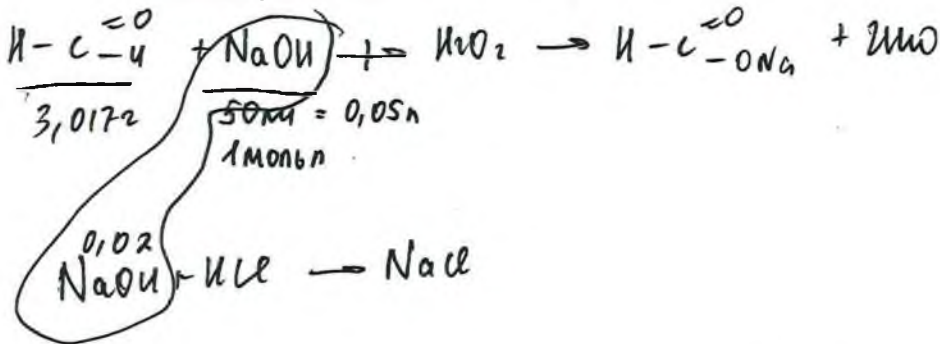 =O
H - C - H + NaOH + H2O2 → H - C =O - ONa + 2H2O
3,017г 50мл = 0,05л
1моль л
0,02
NaOH + HCl → NaCl